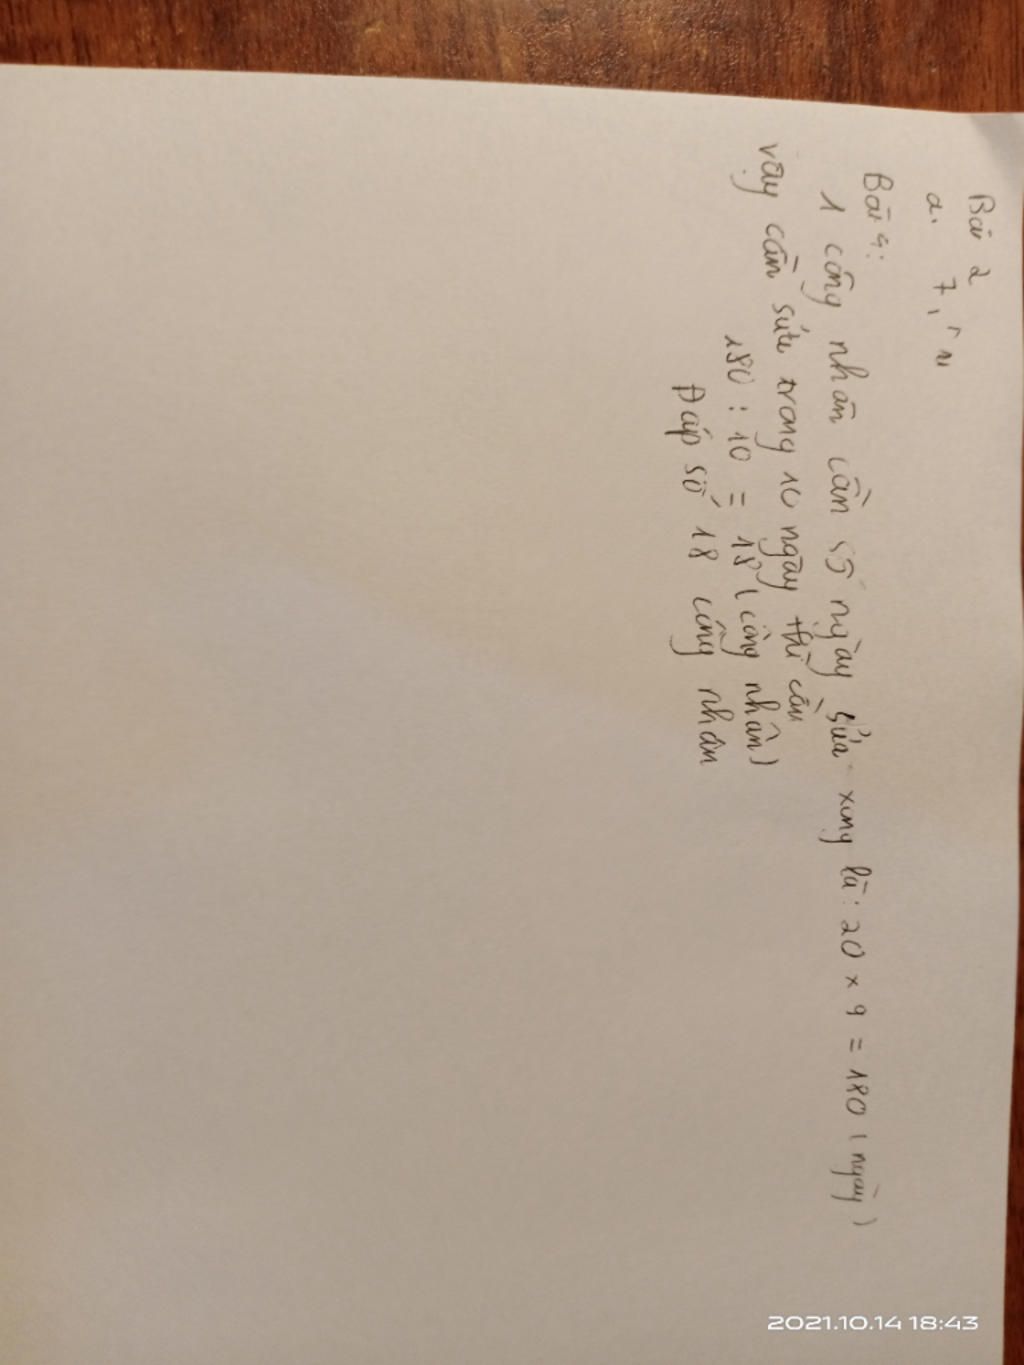 Bài 2
a. 7,
Bài 4:
1 công nhân cần số ngày sửa xong là: 20 x 9 = 180 (ngày)
vậy cần sửa trong 10 ngày thì cần
180 : 10 = 18 (công nhân)
Đáp số 18 công nhân
2021.10.14 18:43